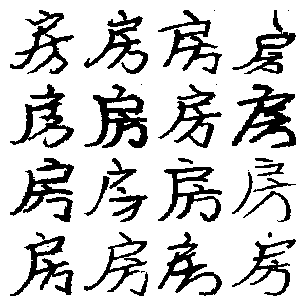 房房房房
房房房房
房房房房
房房房房